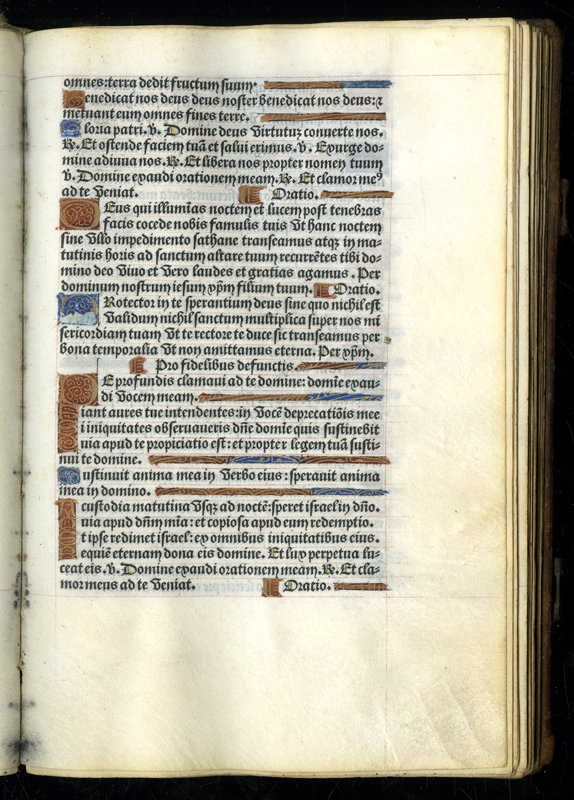 omnes: terra dedit fructum suum.
Benedicat nos deus deus noster benedicat nos deus: ⁊
metuant eum omnes fines terre.
Gloria patri. v̄. Domine deus virtutuȝ conuerte nos.
℞. Et ostende faciem tuā et salui erimus. v̄. Exurge do-
mine adiuua nos. ℞. Et libera nos propter nomen tuum
v̄. Domine exaudi orationem meam. ℞. Et clamor meꝰ
ad te veniat. Oratio.
DEus qui illumīas noctem et lucem post tenebras
facis cōcede nobis famulis tuis vt hanc noctem
sine vllo impedimento sathane transeamus atqȝ in ma-
tutinis horis ad sanctum altare tuum recurrētes tibi do-
mino deo viuo et vero laudes et gratias agamus. Per
dominum nostrum iesum xp̄m filium tuum. Oratio.
PRotector in te sperantium deus sine quo nichil est
validum nichil sanctum multiplica super nos mi
sericordiam tuam vt te rectore te duce sic transeamus per
bona temporalia vt non amittamus eterna. Per xp̄m.
Pro fidelibus defunctis.
DE profundis clamaui ad te domine: domīe exau-
di vocem meam.
Fiant aures tue intendentes: in vocē deprecatiōis mee
Si iniquitates obseruaueris dn̄e domīe quis sustinebit
Quia apud te propiciatio est: et propter legem tuā susti-
nui te domine.
Sustinuit anima mea in verbo eius: sperauit anima
mea in domino.
A custodia matutina vsqȝ ad noctē: speret israel in dn̄o.
Quia apud dn̄m mīa: et copiosa apud eum redemptio.
Et ipse redimet israel: ex omnibus iniquitatibus eius.
Requiē eternam dona eis domine. Et lux perpetua lu-
ceat eis. v̄. Domine exaudi orationem meam. ℞. Et cla-
mor meus ad te veniat. Oratio.